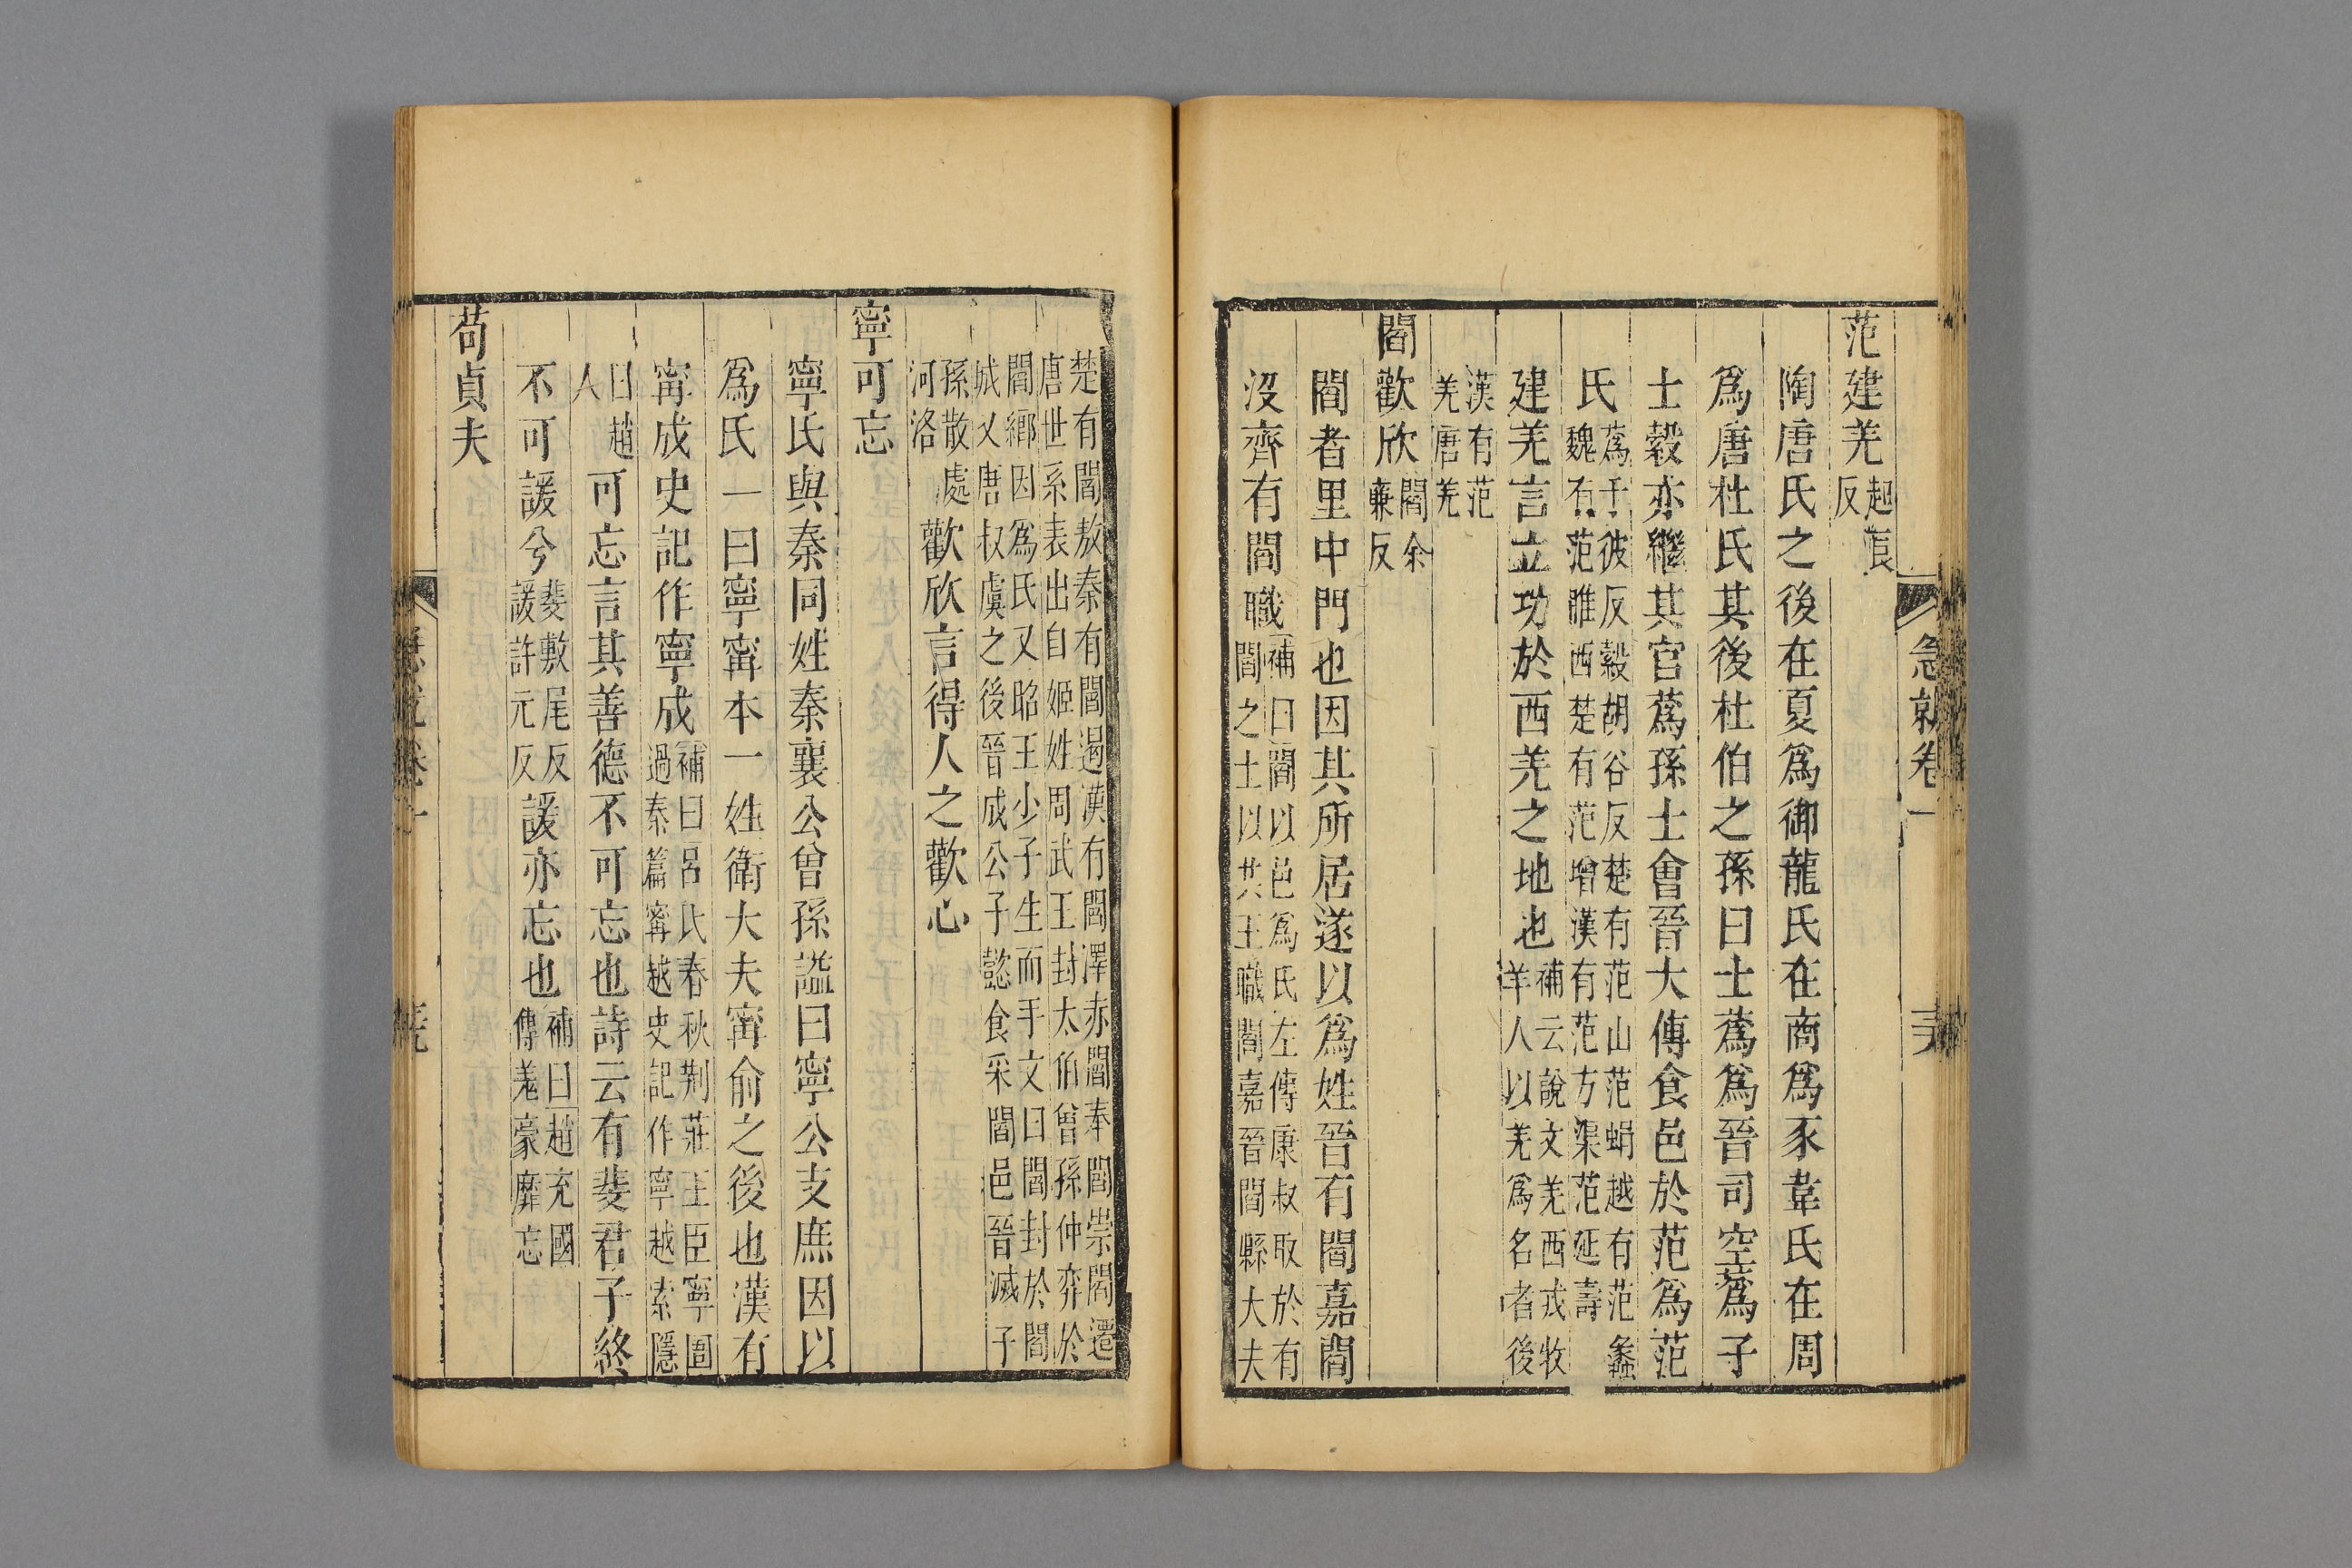 急就卷一
范建羌起良反
陶唐氏之後在夏爲御龍氏在商爲豕韋氏在周
爲唐杜氏其後杜伯之孫曰士蔿爲晉司空蔿子
士縠亦繼其官蔿孫士會晉大傅食邑於范爲范
氏蔿于彼反縠胡谷反楚有范山范蜎越有范蠡
魏有范雎西楚有范增漢有范方渠范延壽
建羌言立功於西羌之地也補云說文羌西戎牧
羊人以羌爲名者後
漢有范
羌唐羌
閻歡欣閻余
㢘反
閻者里中門也因其所居遂以爲姓晉有閻嘉閻
沒齊有閻職補曰閻以邑爲氏左傳康叔取於有
閻之土以共王職閻嘉晉閻縣大夫
楚有閻敖秦有閻遏漢有閻澤赤閻奉閻崇閻遷
唐世系表出自姬姓周武王封太伯曾孫仲弈於
閻鄉因爲氏又昭王少子生而手文曰閻封於閻
城又唐叔虞之後晉成公子懿食采閻邑晉滅子
孫散處
河洛
歡欣言得人之歡心
寧可忘
寧氏與秦同姓秦襄公曾孫謚曰寧公支庶因以
爲氏一曰寧甯本一姓衛大夫甯俞之後也漢有
甯成史記作寧成補曰呂氏春秋荆莊王臣寧圄
過秦篇甯越史記作寧越索隱
曰趙
人
可忘言其善德不可忘也詩云有斐君子終
不可諼兮斐敷尾反
諼許元反
諼亦忘也補曰趙充國
傳羌豪靡忘
荀貞夫
急就卷一